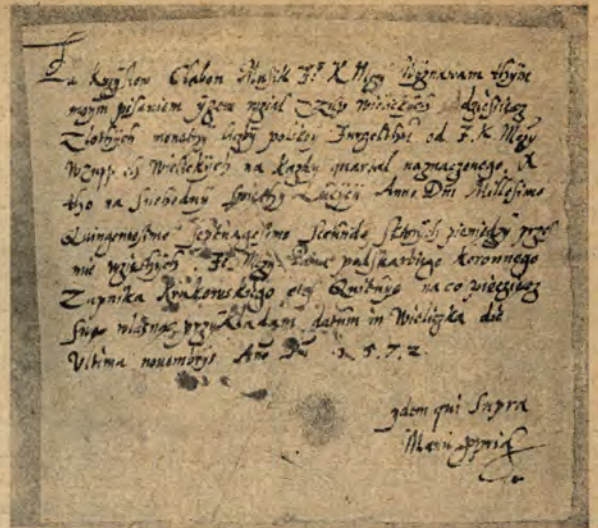 Ja Krzysztoff Clabon Musik J° K Mczy Wyznawam thym
moym pisaniem yzem wzial z zup Wieliczkych dziesziecz
Zlothych monethy liczby polsky Jurgelthu od J. K. Mczy
wzupp ch Wielickych na kazdy quartal naznaczonego. A
tho na Suchedny Swiethy Luczyey Anno Dni Millesimo
Quingentesimo Septuagesimo Secundo ktorych pieniedzy przes
mie wziethych J° Mczy Pana podskarbiego Coronnego
Zupnika Krakowskiego etc Quituye na co pieczecz
swą wlasnąc przykladam datum in Wieliczka die
Vltima novembrys Ano Dni 1.5.7.2.
ydem qui Supra
Manu ppria